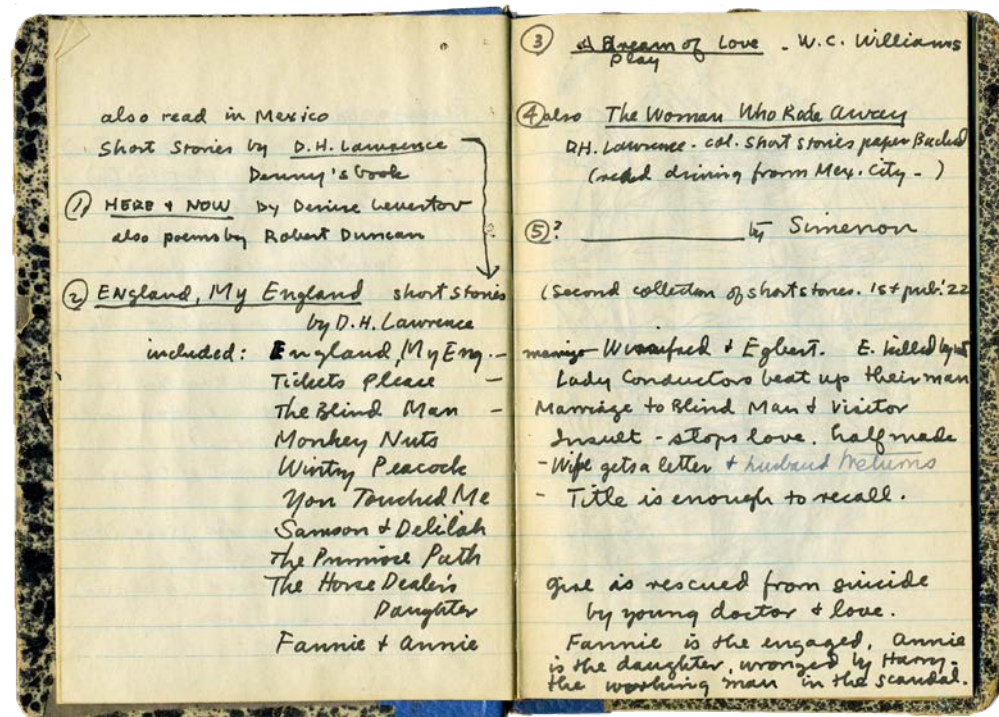 also read in Mexico
Short Stories by D.H. Lawrence
Denny's book
① HERE & NOW by Denise Levertov
also poems by Robert Duncan
② England, My England short stories
by D.H. Lawrence
included: England, My Eng. -
Tickets Please -
The Blind Man -
Monkey Nuts
Wintry Peacock
You Touched Me
Samson & Delilah
The Primrose Path
The Horse Dealer's
Daughter
Fannie & Annie
③ A Dream of Love - W.C. Williams
Play
④ also The Woman Who Rode Away
D.H. Lawrence - col. short stories paper Backed
(readed driving from Mex. City - )
⑤ ? by Simenon
(Second collection of short stories. 1st pub. '22
marriage Winnifred & Egbert. E. killed by
Lady Conductors beat up their man
Marriage to Blind Man & Visitor
Insult - stops love. half made
- Wife gets a letter & husband returns
- Title is enough to recall.
Girl is rescued from suicide
by young doctor & love.
Fannie is the engaged, Annie
is the daughter, wronged by Harry -
the working man in the scandal.